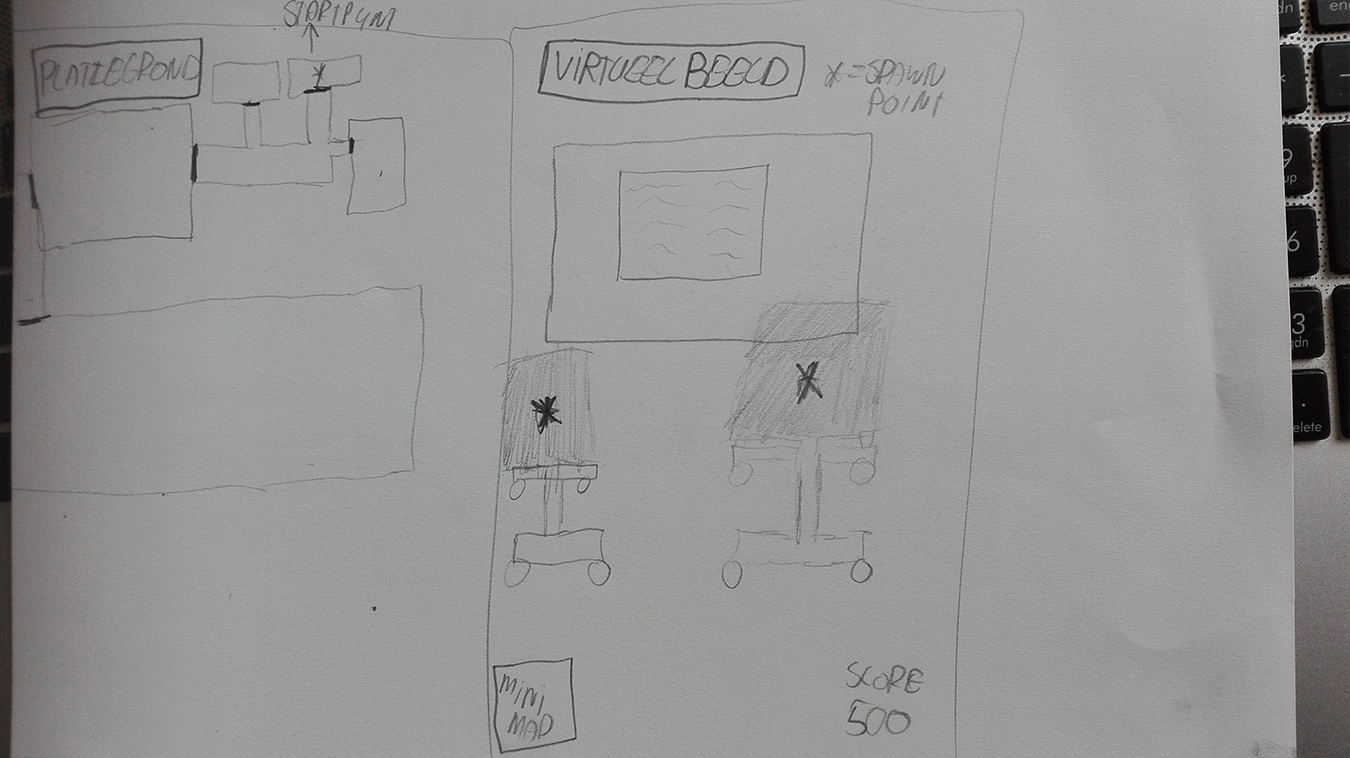 STARTPUNT
PLATTEGROND
VIRTUEEL BEELD
*=SPAWN
POINT
MINI
MAP
SCORE
500
dn
en
*
9
up
6
3
dn
.
elete